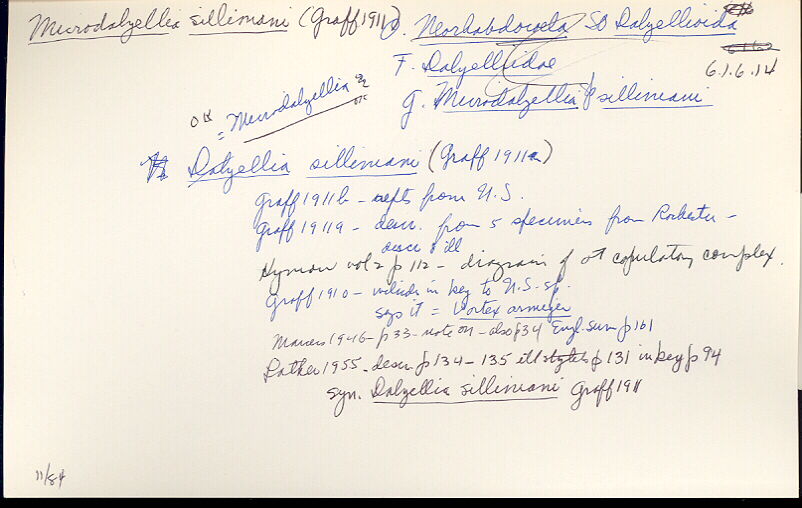 Microdalyellia sillimani (Graff 1911) O. Neorhabdocoela SO Dalyellioida
F. Dalyelliidae
6.1.6.14
G. Microdalyellia sillimani
OK = Microdalyellia
Dalyellia sillimani (Graff 1911a)
Graff 1911b - repts from U.S.
Graff 1911a - descr. from 5 specimens from Rochester -
desc & ill
Hyman vol 2 p 112 - diagram of copulatory complex.
Graff 1910 - includes in key to U.S. sp.
says it = Vortex armiger
Marcus 1946 - p 33 - note on - also p 34 Engl. sum p 161
Luther 1955 - descr p 134 - 135 ill stylets p 131 in key p 94
syn. Dalyellia sillimani Graff 1911
11/84